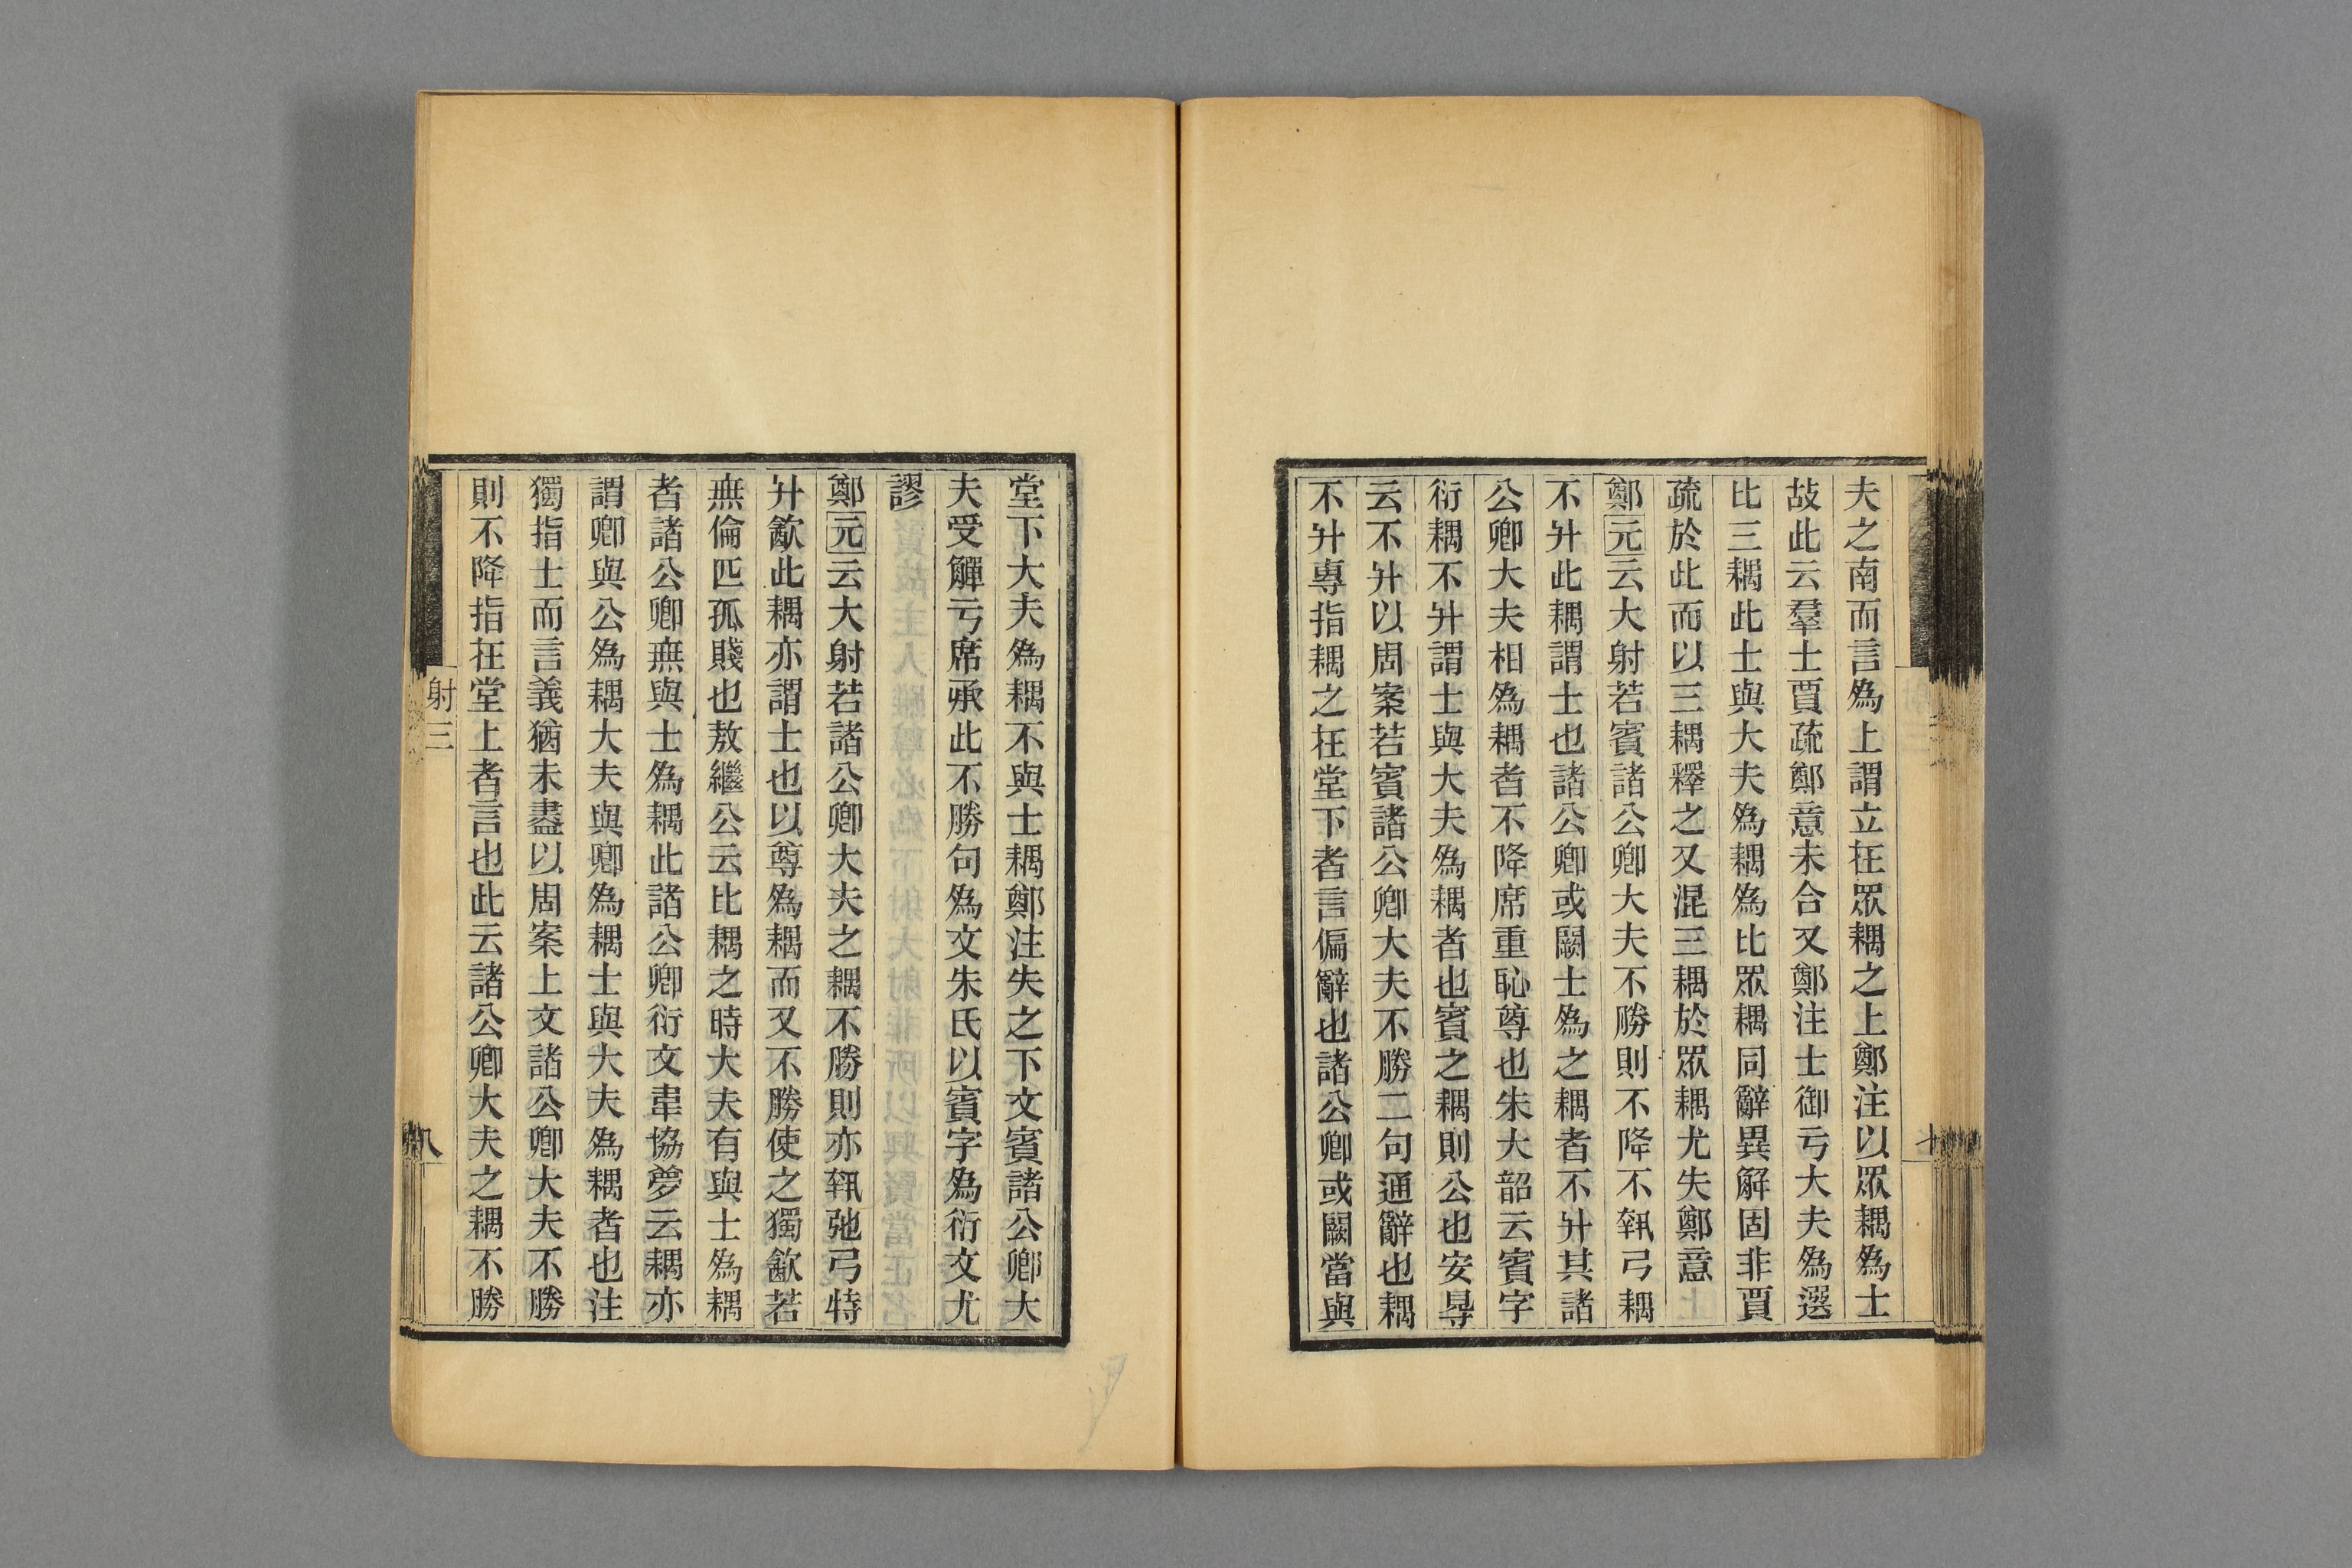 夫之南而言為上謂立在眾耦之上鄭注以眾耦為士
故此云羣士賈疏鄭意未合又鄭注士御亏大夫為選
比三耦此士與大夫為耦為比眾耦同辭異解固非賈
疏於此而以三耦釋之又混三耦於眾耦尤失鄭意
鄭元云大射若賓諸公卿大夫不勝則不降不執弓耦
不升此耦謂士也諸公卿或闕士為之耦者不升其諸
公卿大夫相為耦者不降席重恥尊也朱大韶云賓字
衍耦不升謂士與大夫為耦者也賓之耦則公也安得
云不升以周案若賓諸公卿大夫不勝二句通辭也耦
不升專指耦之在堂下者言偏辭也諸公卿或闕當與
堂下大夫為耦不與士耦鄭注失之下文賓諸公卿大
夫受觶亏席承此不勝句為文朱氏以賓字為衍文尤
謬
鄭元云大射若諸公卿大夫之耦不勝則亦執弛弓特
升飮此耦亦謂士也以尊為耦而又不勝使之獨飮若
無倫匹孤賤也敖繼公云比耦之時大夫有與士為耦
者諸公卿無與士為耦此諸公卿衍文韋協夢云耦亦
謂卿與公為耦大夫與卿為耦士與大夫為耦者也注
獨指士而言義猶未盡以周案上文諸公卿大夫不勝
則不降指在堂上者言也此云諸公卿大夫之耦不勝
射三
八